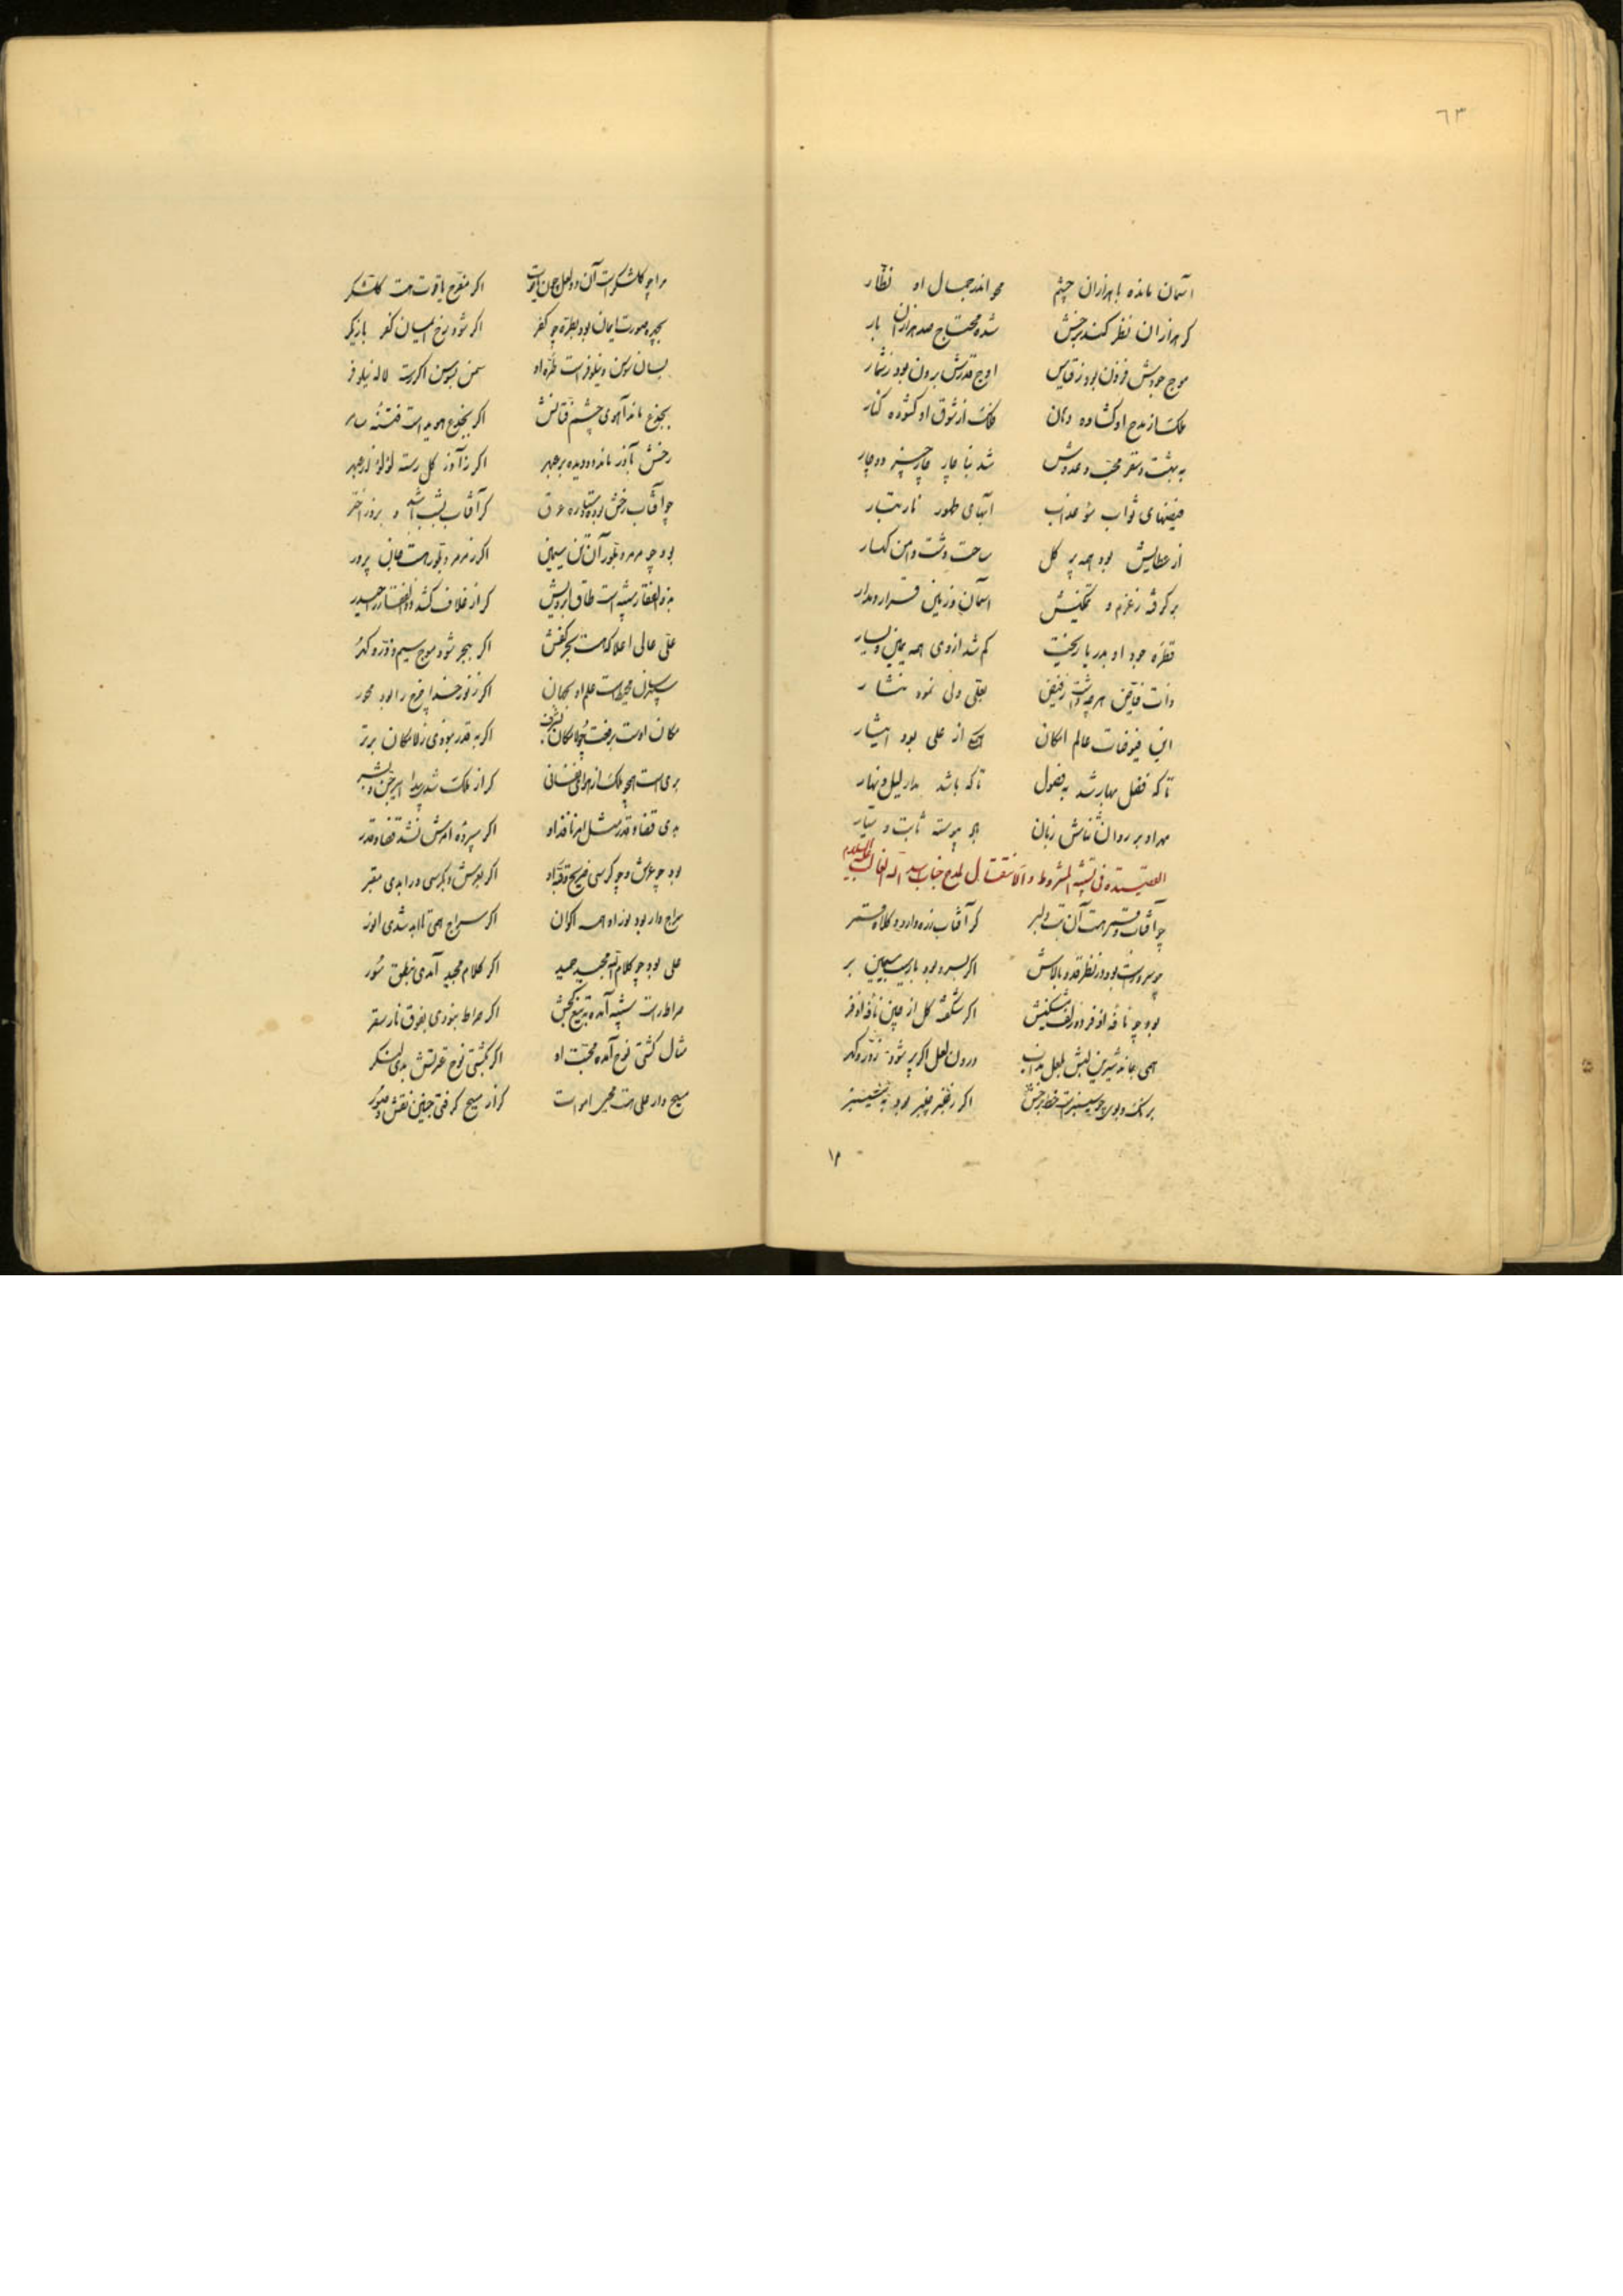 ٦٣
آسمان مانده با هزاران چشم محو اندر جمال او نظار
کر هزاران نظر کنند برخش شده محتاج صد هزاران بار
موج جودش فزون بود ز قیاس اوج قدرش برون بود ز شمار
ملک از مدح او کشاده دهان فلک از شوق او کشوده کنار
به بهشت و سقر محب و عدوش شد بناچار چار چیز دوچار
فیضهای ثواب سوء عذاب آبهای طهور نار
از عطایش بود همه پر کل ساحت دشت و دامن کهسار
بر کرفته ز عزم و تمکینش آسمان و زمین قرار و مدار
قطره جود او بدریا ریخت کم شد از وی همه یمین و یسار
ذات فایض هر چه داشت ز فیض بعلی ولی نمود نثار
این فیوضات عالم امکان از علی بود ایثار
تا که فصل بهار شد بفصول تا که باشد مدار لیل و نهار
بهر او بر روان ثناش زبان پیوسته ثابت و سیار
القصیده فی تشبیه المشروط و الانتقال لمدح جناب اسد الله الغالب علیه السلام
چو آفتاب و قمر هست آن بت دلبر کر آفتاب زره دارد و کلاه قمر
چو سرو راست بود در نظر قد و بالاش اکر بسرو بود بار سیب سیمین بر
بود چو نافه اذفر دو زلف مشکینش اکر شکفته کل از چین نافه اذفر
همی بماند شیرین لبش بلعل مذاب درون لعل اکر پر شود ز در و کهر
برنک و بوی چو سیسنبر است خط برخش اکر ز عنبر بود سیسنبر
مرا چو کلشکر است آن دو لعل چون یاقوت اکر مفرح یاقوت هست کلشکر
بچهره صورت ایمان بود بطره چو کفر اکر شود برخ ایمان کفر بازیکر
بسان سوسن و نیلوفر است طره او سمن بسوسن اکر رست لاله نیلوفر
رخش بآذر مانده دو دیده بر عبهر اکر ز آذر کل رسته لؤلؤ از عبهر
چو آفتاب رخش بود و ستاره عرق کر آفتاب بشب باشد و بروز اختر
بود چو مرمر و بلور آن تن سیمین اکر ز مرمر و بلور هست جان پرور
بذوالفقار شبیه است طاق ابرویش کر از غلاف کشد ذوالفقار را حیدر
علی عالی اعلا که هست بحر کفش اکر ببحر شود موج سیم و زر و کهر
سپهرسان محیط است علم او بجهان اکر ز نور خدا چرخ را بود محور
مکان اوست برفعت چو لامکان بشرف اکر به قدر نبودی ز لامکان برتر
بری است همچو ملک از هوای نفسانی کر از ملک شد پیدا امیر جن و بشر
بدی قضا و قدر مثل امر نافذ او اکر سپرده امرش نشد قضا و قدر
بود چو عرش و چو کرسی ضریح و قبه او اکر بعرش و بکرسی در آبدی مقبر
سراج وار بود نور او همه اکوان اکر سراج همی تا ابد شدی انور
علی بود چو کلام الله مجید حمید اکر کلام مجید آمدی بنطق سور
صراط راست شبیه آمده بتیغ کجش اکر صراط نبودی بفوق نار سقر
مثال کشتی نوح آمده محبت او اکر بکشتی نوح عترتش بدی لنکر
مسیح وار علی هست محیی اموات کر از مسیح کرفتی چنین نقش و صور